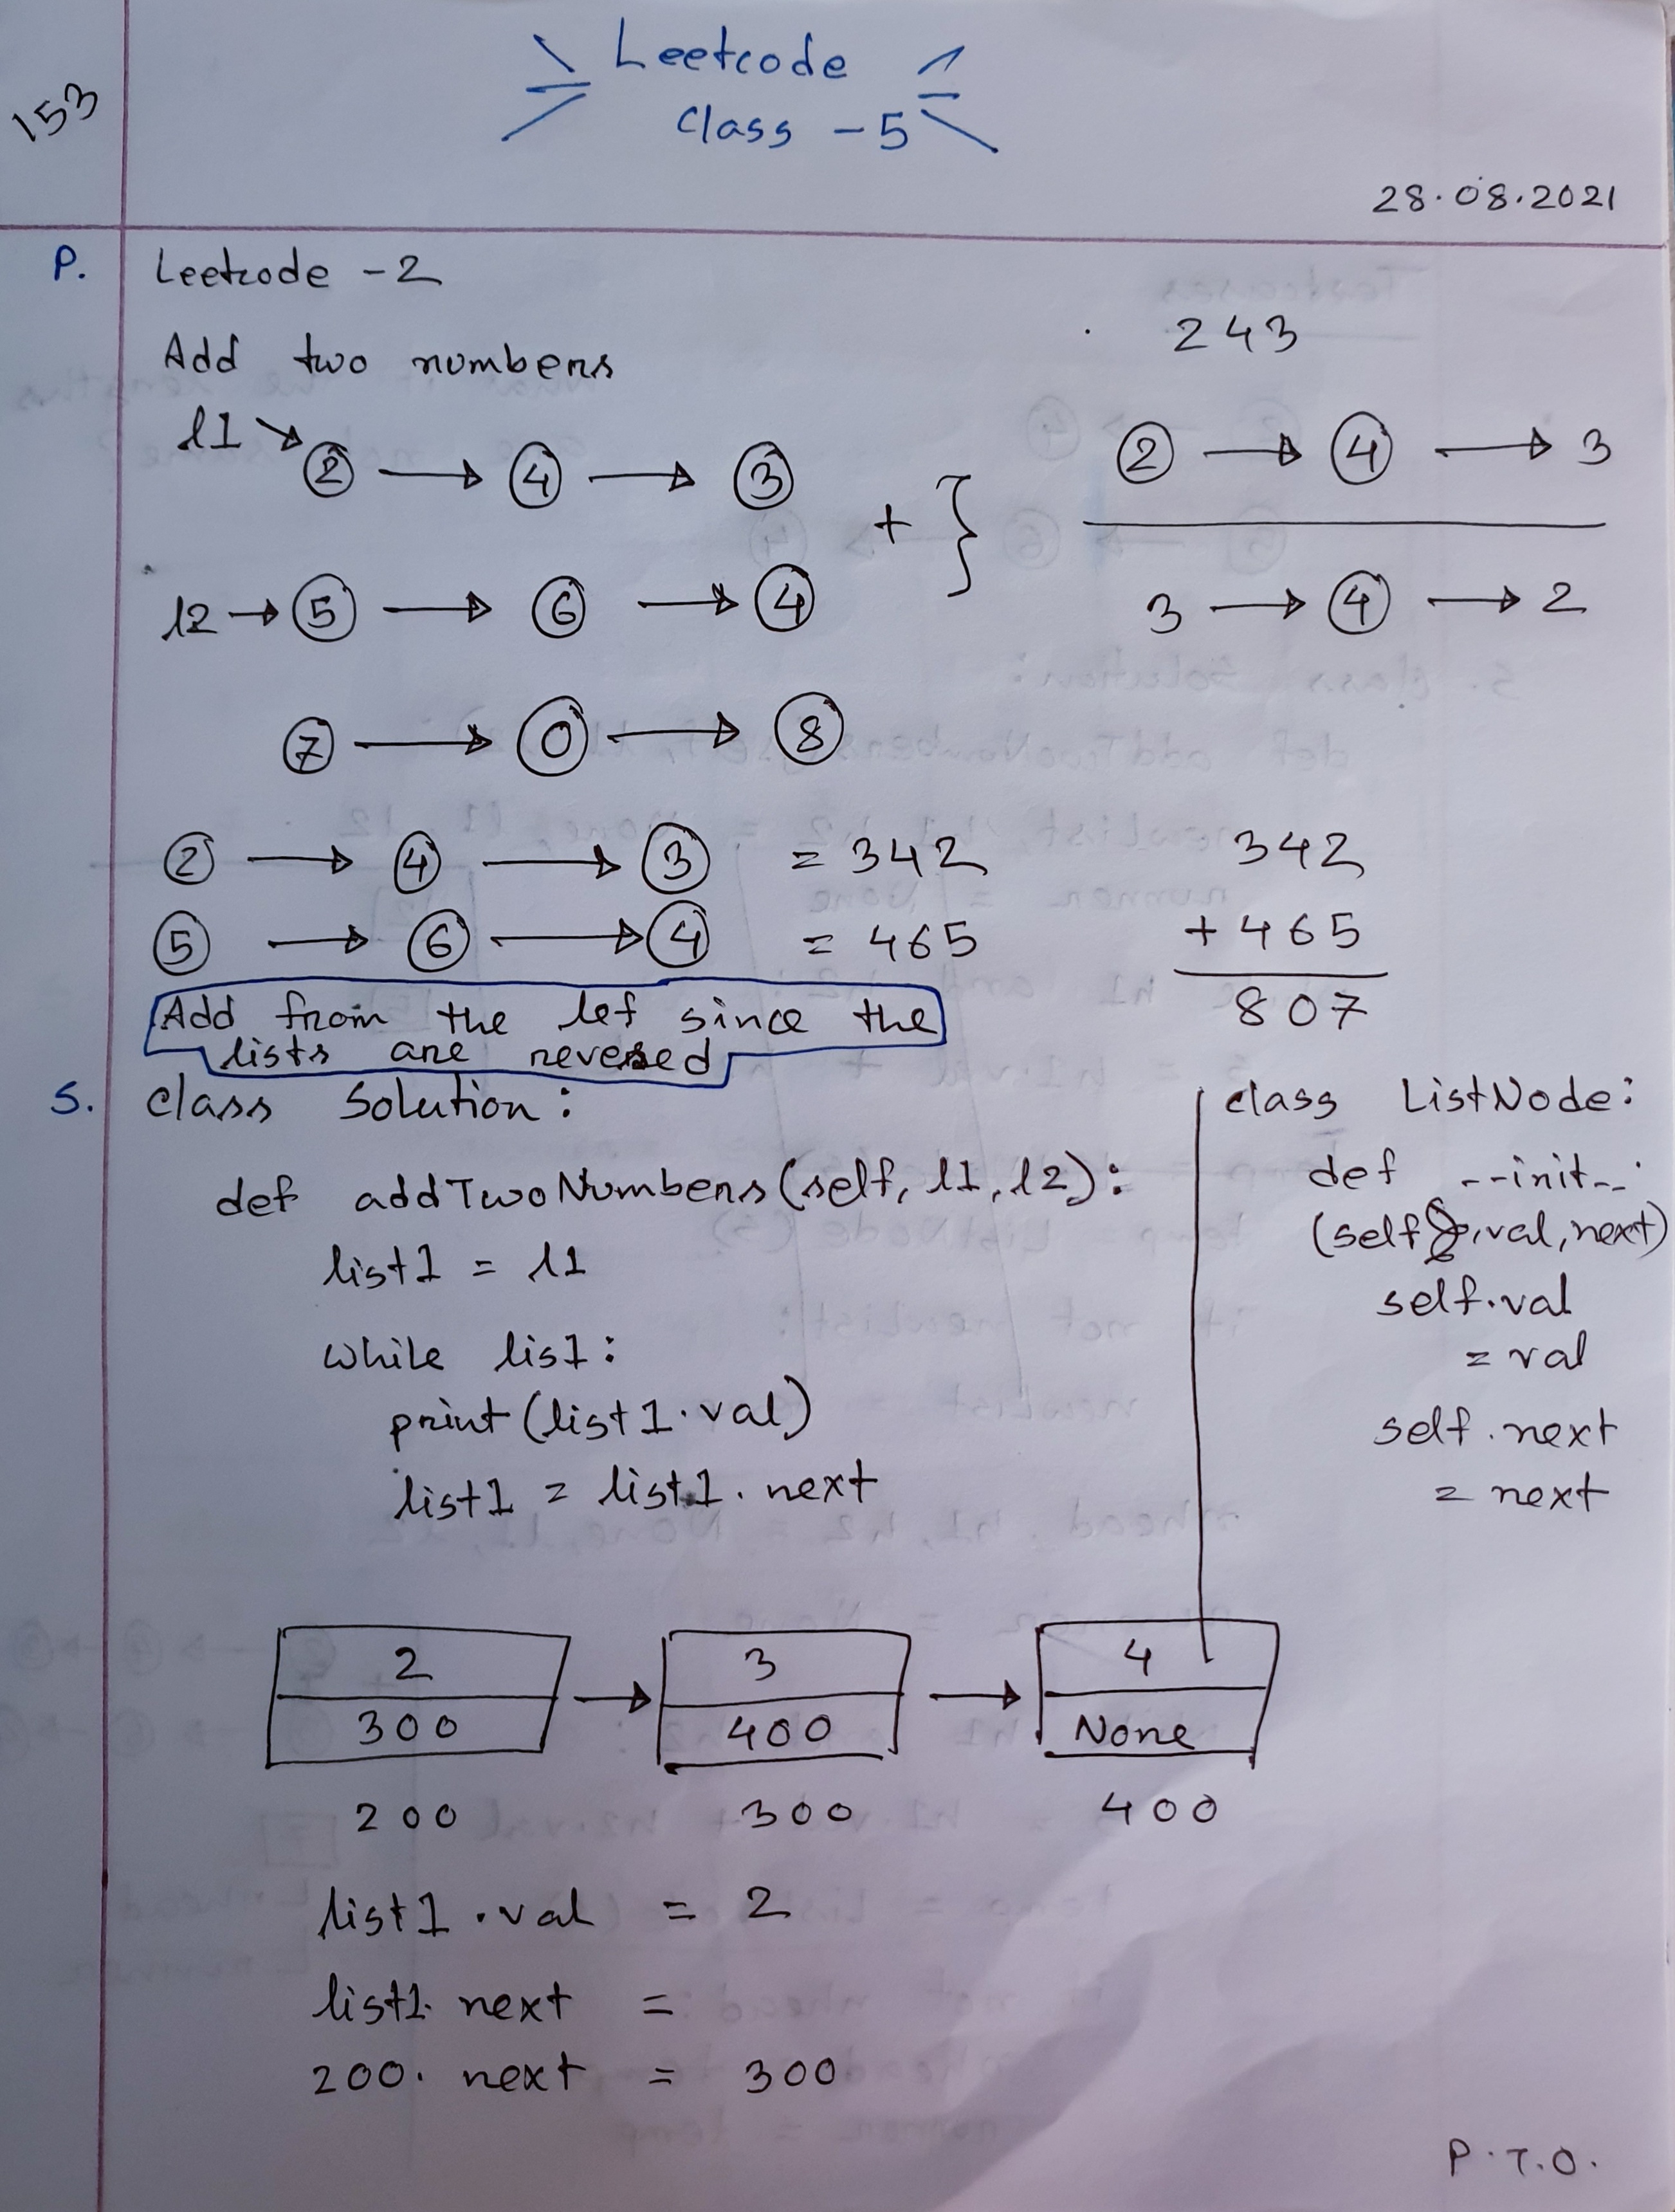 153
Leetcode
Class - 5
28.08.2021
P. Leetcode - 2
Add two numbers
243
l1 → 2 → 4 → 3
+ }
2 → 4 → 3
l2 → 5 → 6 → 4
3 → 4 → 2
7 → 0 → 8
2 → 4 → 3 = 342
5 → 6 → 4 = 465
342
+ 465
807
Add from the lef since the
lists are reversed
S. class Solution:
def addTwoNumbers(self, l1, l2):
list1 = l1
while lis1:
print(list1.val)
list1 = list1.next
class ListNode:
def __init__:
(self, val, next)
self.val
= val
self.next
= next
2 → 3 → 4
300 400 None
200 300 400
list1.val = 2
list1.next =
200.next = 300
P.T.O.